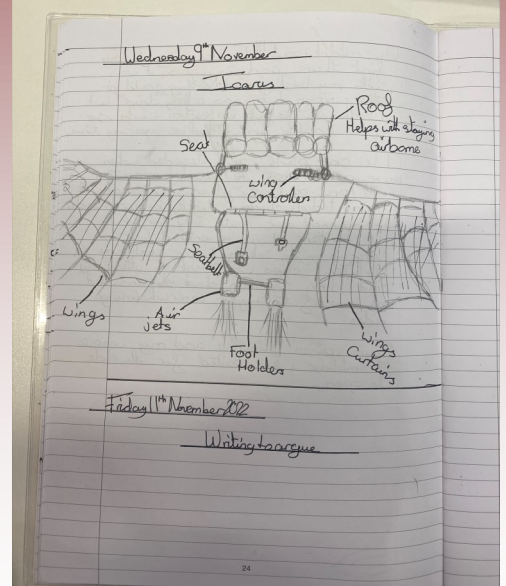 Wednesday 9th November
Icarus
Roof
Helps with staying
airborne
Seat
wing
Controller
Seatbelt
wings
Air
jets
Foot
Holders
wings
Curtains
Friday 11th November 2022
Writing to argue
24